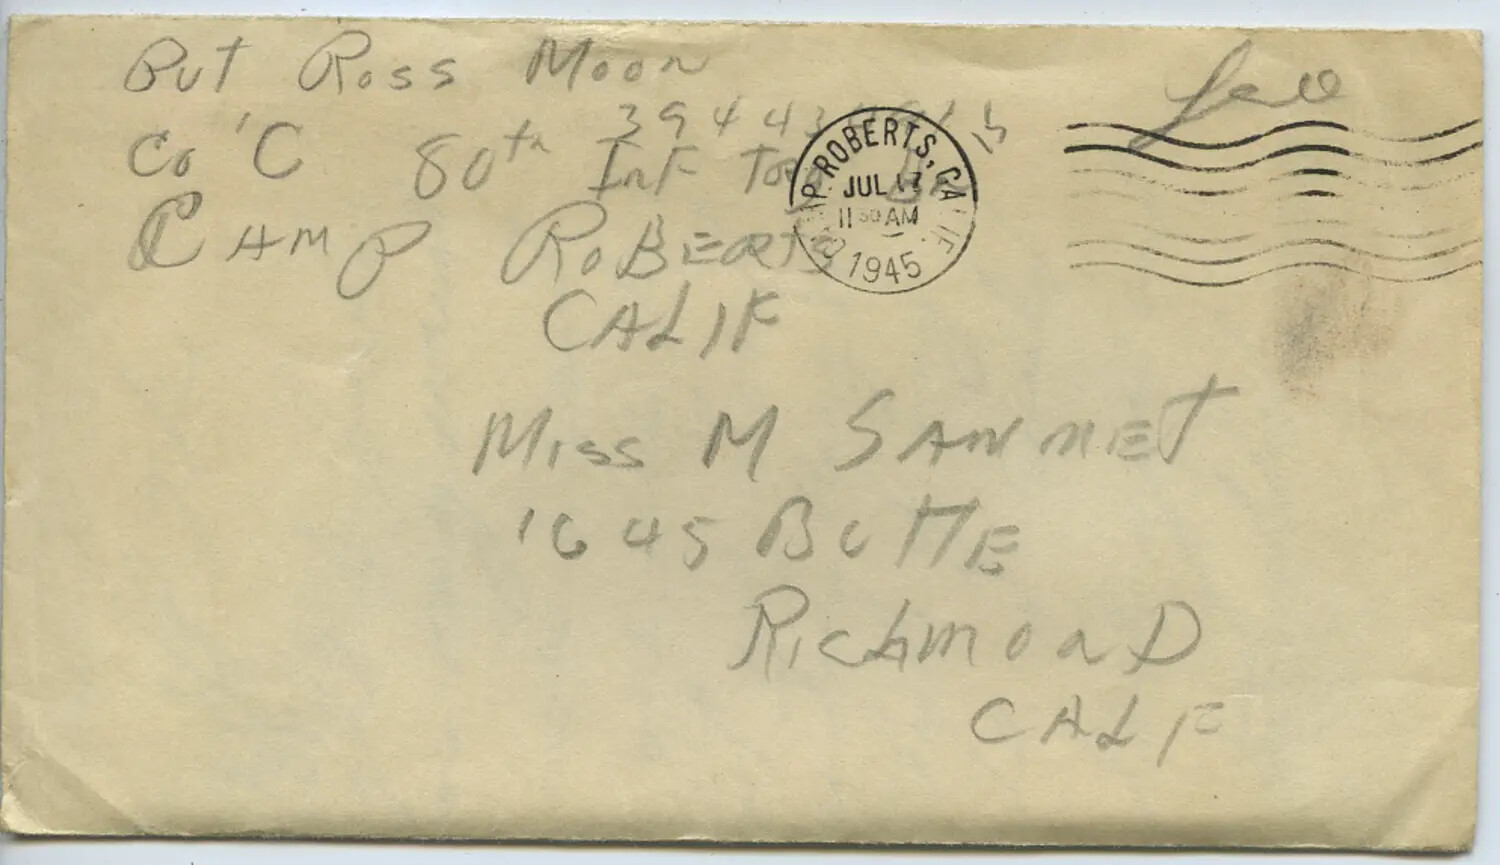 Pvt Ross Moon
Free
Co 'C 80th Inf Trng Bn
Camp Roberts
CALIF
P. ROBERTS, CALIF.
JUL 17
11 30 AM
1945
Miss M SANMET
1645 BUTTE
RichmonD
CALF